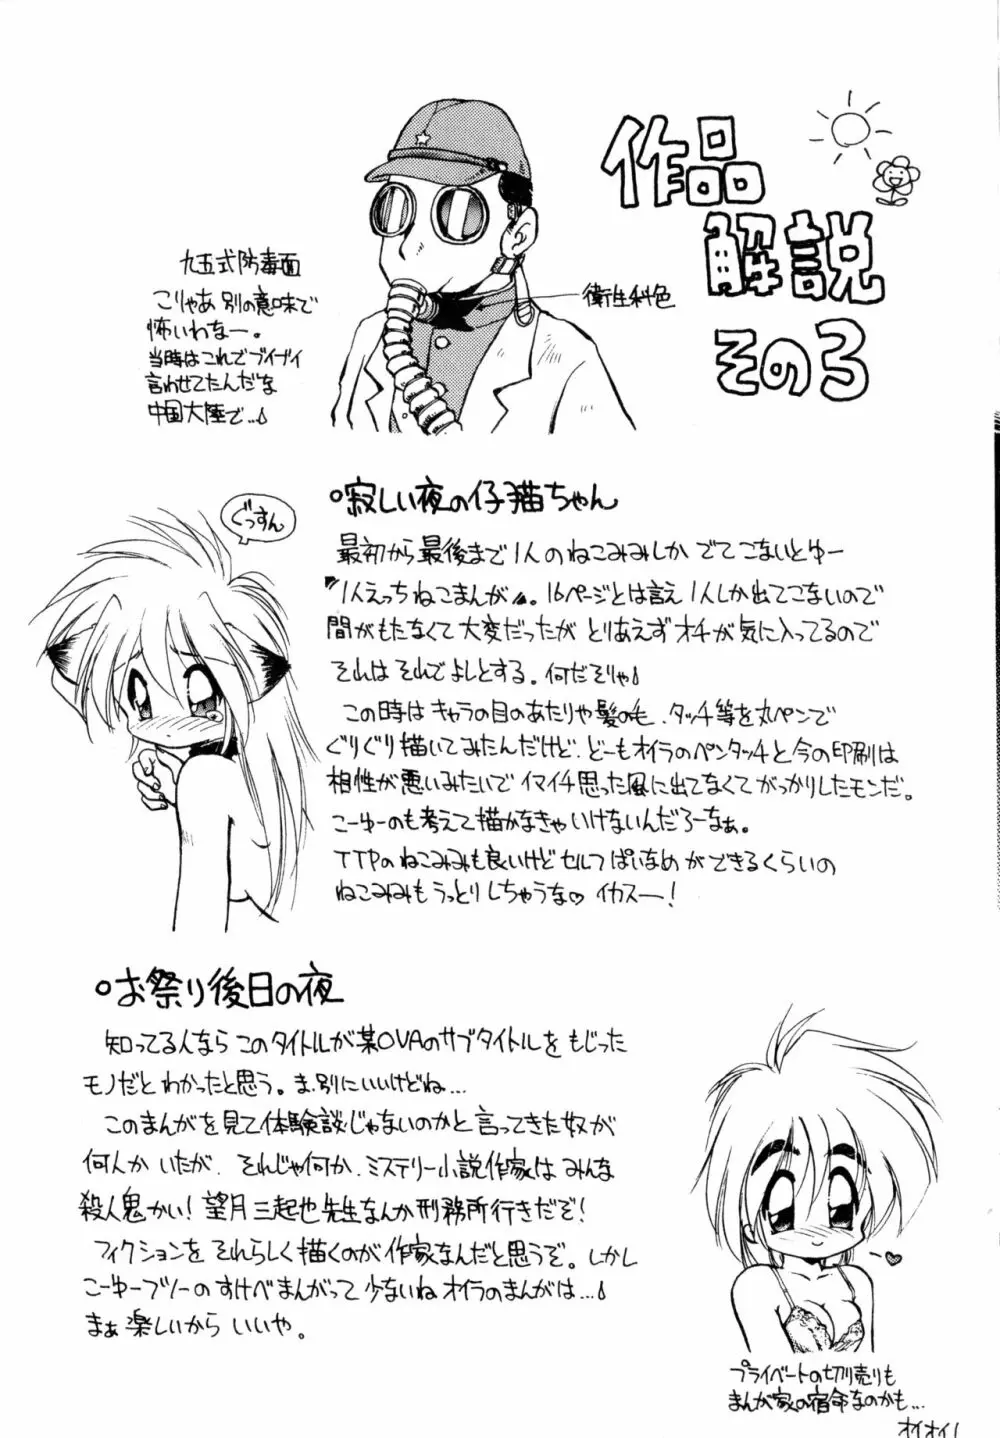 作品
解説
その3
九五式防毒面
こりゃあ別の意味で
怖いわなー。
当時はこれでブイブイ
言わせてたんだな
中国大陸で…♪
衛生科色
ぐっすん
○寂しい夜の仔猫ちゃん
最初から最後まで1人のねこみみしかでてこないとゆー
〝1人えっちねこまんが〟。16ページとは言え1人しか出てこないので
間がもたなくて大変だったがとりあえずオチが気に入ってるので
それはそれでよしとする。何だそりゃ♪
この時はキャラの目のあたりや髪のも、タッチ等を丸ペンで
ぐりぐり描いてみたんだけど、どーもオイラのペンタッチと今の印刷は
相性が悪いみたいでイマイチ思った風に出てなくてがっかりしたモンだ。
こーゆーのも考えて描かなきゃいけないんだろーなぁ。
TTPのねこみみも良いけどセルフぱいなめができるくらいの
ねこみみもうっとりしちゃうな♡イカスー!
○お祭り後日の夜
知ってる人ならこのタイトルが某OVAのサブタイトルをもじった
モノだとわかったと思う。ま、別にいいけどね…
このまんがを見て体験談じゃないのかと言ってきた奴が
何人かいたが、それじゃ何か、ミステリー小説作家はみんな
殺人鬼かい!望月三起也先生なんか刑務所行きだぞ!
フィクションをそれらしく描くのが作家なんだと思うぞ。しかし
こーゆーフツーのすけべまんがって少ないねオイラのまんがは…♪
まぁ楽しいからいいや。
プライベートの切り売りも
まんが家の宿命なのかも…
オイオイ!